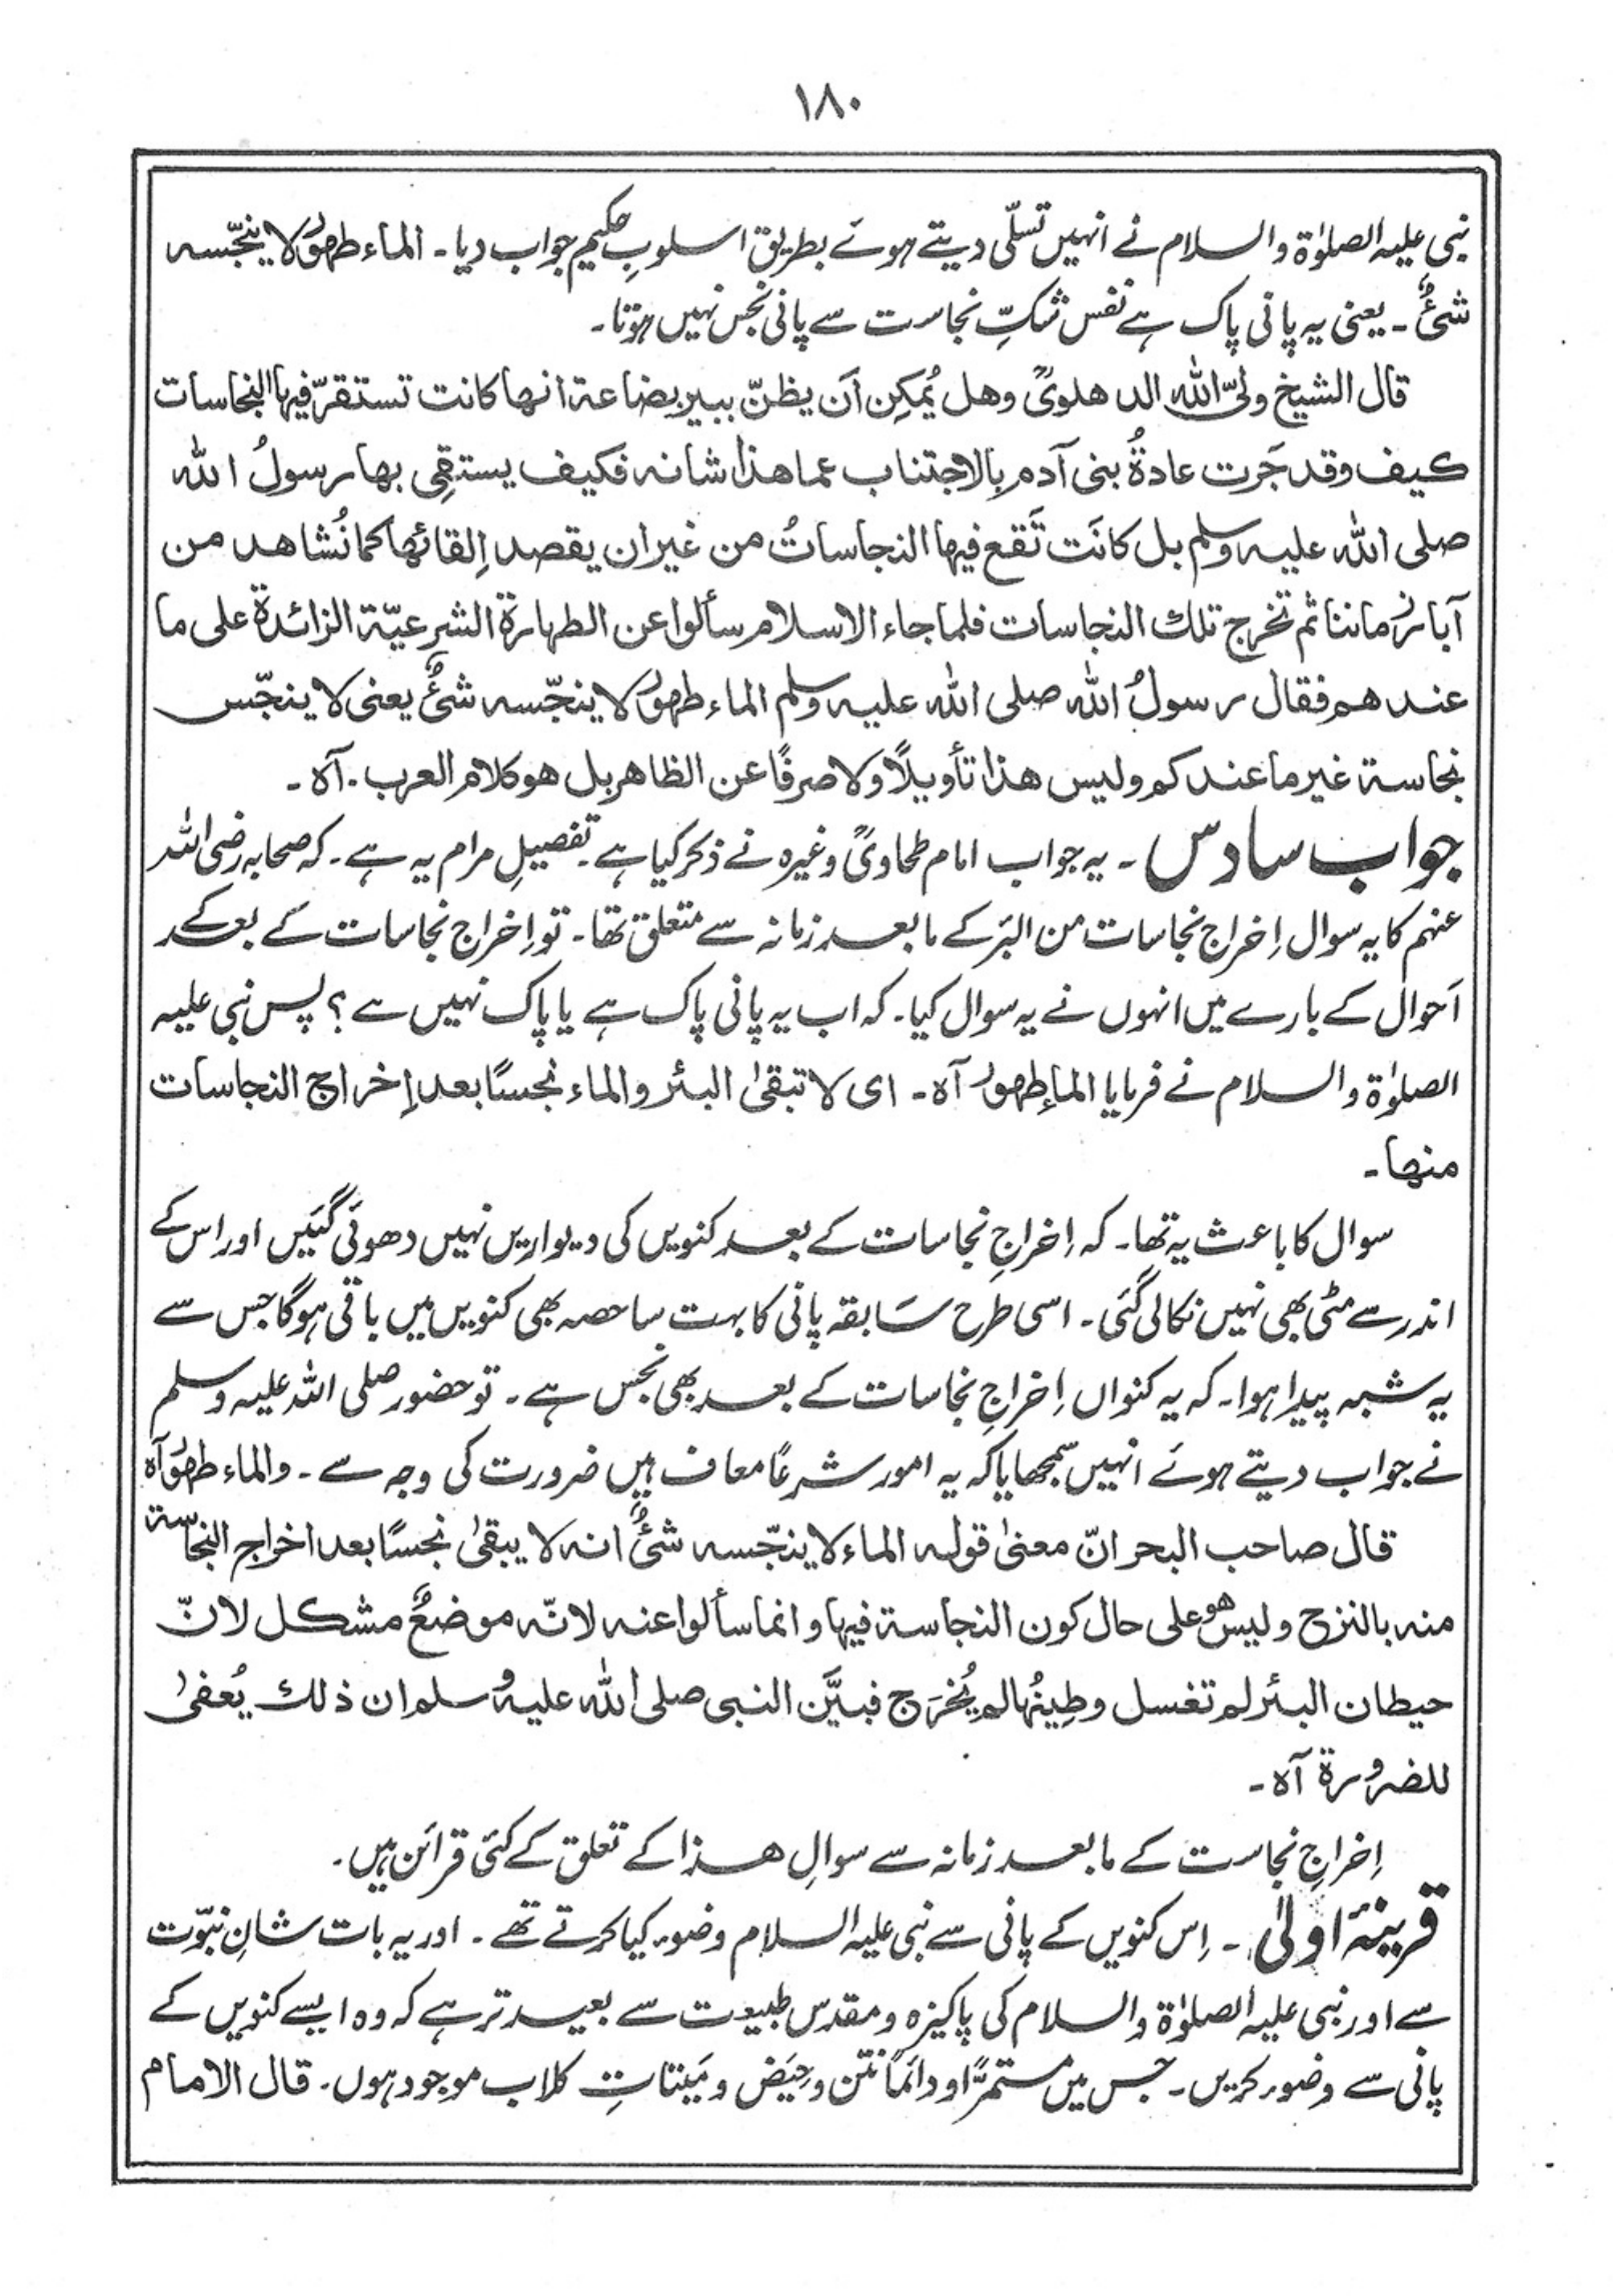 ۱۸۰
نبی علیہ الصلوٰۃ والسلام نے انہیں تسلّی دیتے ہوئے بطریق اسلوبِ حکیم جواب دیا۔ الماء طھورٌ لا ینجّسہ
شئٌ۔ یعنی یہ پانی پاک ہے نفس شکِّ نجاست سے پانی نجس نہیں ہوتا۔
قال الشیخ ولیّ اللہ الدھلویؒ وھل یُمکِن اَن یظنّ ببیر بضاعۃ انھا کانت تستقرّ فیھا النجاسات
کیف وقد جَرت عادۃُ بنی آدم بالاجتناب عما ھذا شانہ فکیف یستقِی بھا رسولُ اللہ
صلی اللہ علیہ وسلم بل کانَت تَقع فیھا النجاساتُ من غیر ان یقصد اِلقائھا کما نُشاھد من
آبار زماننا ثم تخرج تلک النجاسات فلما جاء الاسلام سألوا عن الطہارۃ الشرعیّۃ الزائدۃ علی ما
عندھم فقال رسولُ اللہ صلی اللہ علیہ وسلم الماء طھورٌ لا ینجّسہ شئٌ یعنی لا ینجّس
نجاسۃ غیر ما عندکم ولیس ھذا تأویلًا ولا صرفًا عن الظاھر بل ھو کلام العرب۔ آہ۔
جواب سادس۔ یہ جواب امام طحاویؒ وغیرہ نے ذکر کیا ہے۔ تفصیلِ مرام یہ ہے۔ کہ صحابہ رضی اللہ
عنہم کا یہ سوال اِخراج نجاسات من البئر کے مابعد زمانہ سے متعلق تھا۔ تو اِخراج نجاسات کے بعد کے
اَحوال کے بارے میں انہوں نے یہ سوال کیا۔ کہ اب یہ پانی پاک ہے یا پاک نہیں ہے ؟ پس نبی علیہ
الصلوٰۃ والسلام نے فرمایا الماء طھورٌ آہ۔ ای لا تبقیٰ البئر والماء نجسًا بعد اِخراج النجاسات
منھا۔
سوال کا باعث یہ تھا۔ کہ اِخراجِ نجاسات کے بعد کنویں کی دیواریں نہیں دھوئی گئیں اور اس کے
اندر سے مٹی بھی نہیں نکالی گئی۔ اسی طرح سَابقہ پانی کا بہت سا حصہ بھی کنویں میں باقی ہوگا جس سے
یہ شبہ پیدا ہوا۔ کہ یہ کنواں اِخراجِ نجاسات کے بعد بھی نجس ہے۔ تو حضور صلی اللہ علیہ وسلم
نے جواب دیتے ہوئے انہیں سمجھایا کہ یہ امور شرعًا معاف ہیں ضرورت کی وجہ سے۔ والماء طھورٌ آہ
قال صاحب البحر انّ معنیٰ قولہ الماء لا ینجّسہ شئٌ انہ لا یبقیٰ نجسًا بعد اخراج النجاسۃ
منہ بالنزح ولیس ھو علی حال کون النجاسۃ فیھا وانما سألوا عنہ لانّہ موضعٌ مشکل لانّ
حیطان البئر لم تغسل وطِینُھا لم یُخرَج فبیَّن النبی صلی اللہ علیہ وسلم ان ذلک یُعفیٰ
للضرورۃ آہ۔
اِخراجِ نجاست کے مابعد زمانہ سے سوالِ ھذا کے تعلق کے کئی قرائن ہیں۔
قرینۂ اولیٰ۔ اِس کنویں کے پانی سے نبی علیہ السلام وضوء کیا کرتے تھے۔ اور یہ بات شانِ نبوّت
سے اور نبی علیہ الصلوٰۃ والسلام کی پاکیزہ و مقدس طبیعت سے بعید تر ہے کہ وہ ایسے کنویں کے
پانی سے وضوء کریں۔ جس میں مستمرًّا و دائمًا نَتَن و حِیَض و مَیتاتِ کلاب موجود ہوں۔ قال الامام